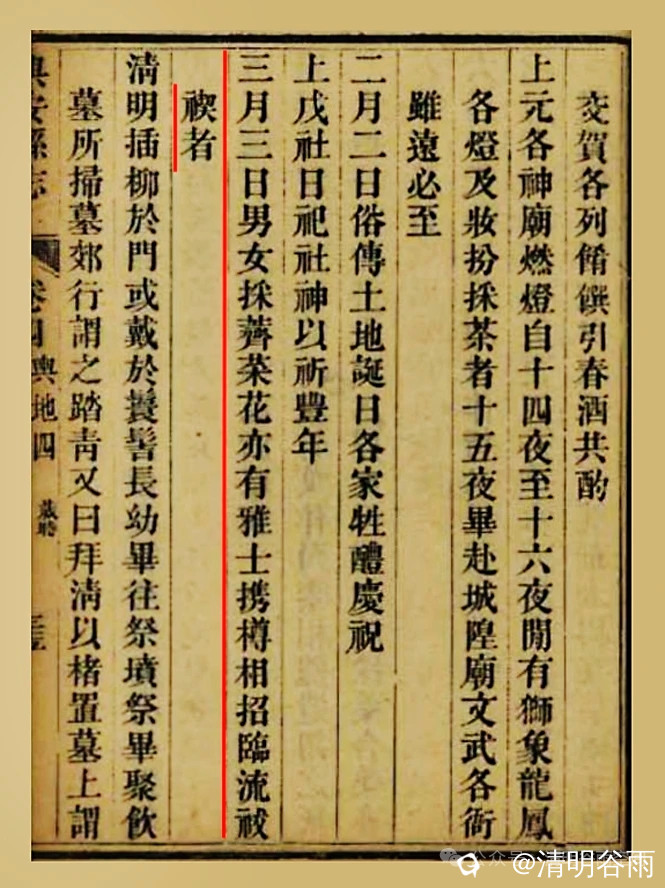 交賀各列餚饌引春酒共酌
上元各神廟燃燈自十四夜至十六夜閒有獅象龍鳳
各燈及妝扮採茶者十五夜畢赴城隍廟文武各衙
雖遠必至
二月二日俗傳土地誕日各家牲醴慶祝
上戊社日祀社神以祈豐年
三月三日男女採薺菜花亦有雅士携樽相招臨流祓
禊者
清明插柳於門或戴於鬢髻長幼畢往祭墳祭畢聚飲
墓所掃墓郊行謂之踏青又曰拜清以楮置墓上謂
興安縣志 卷四 輿地四
公众号
@清明谷雨